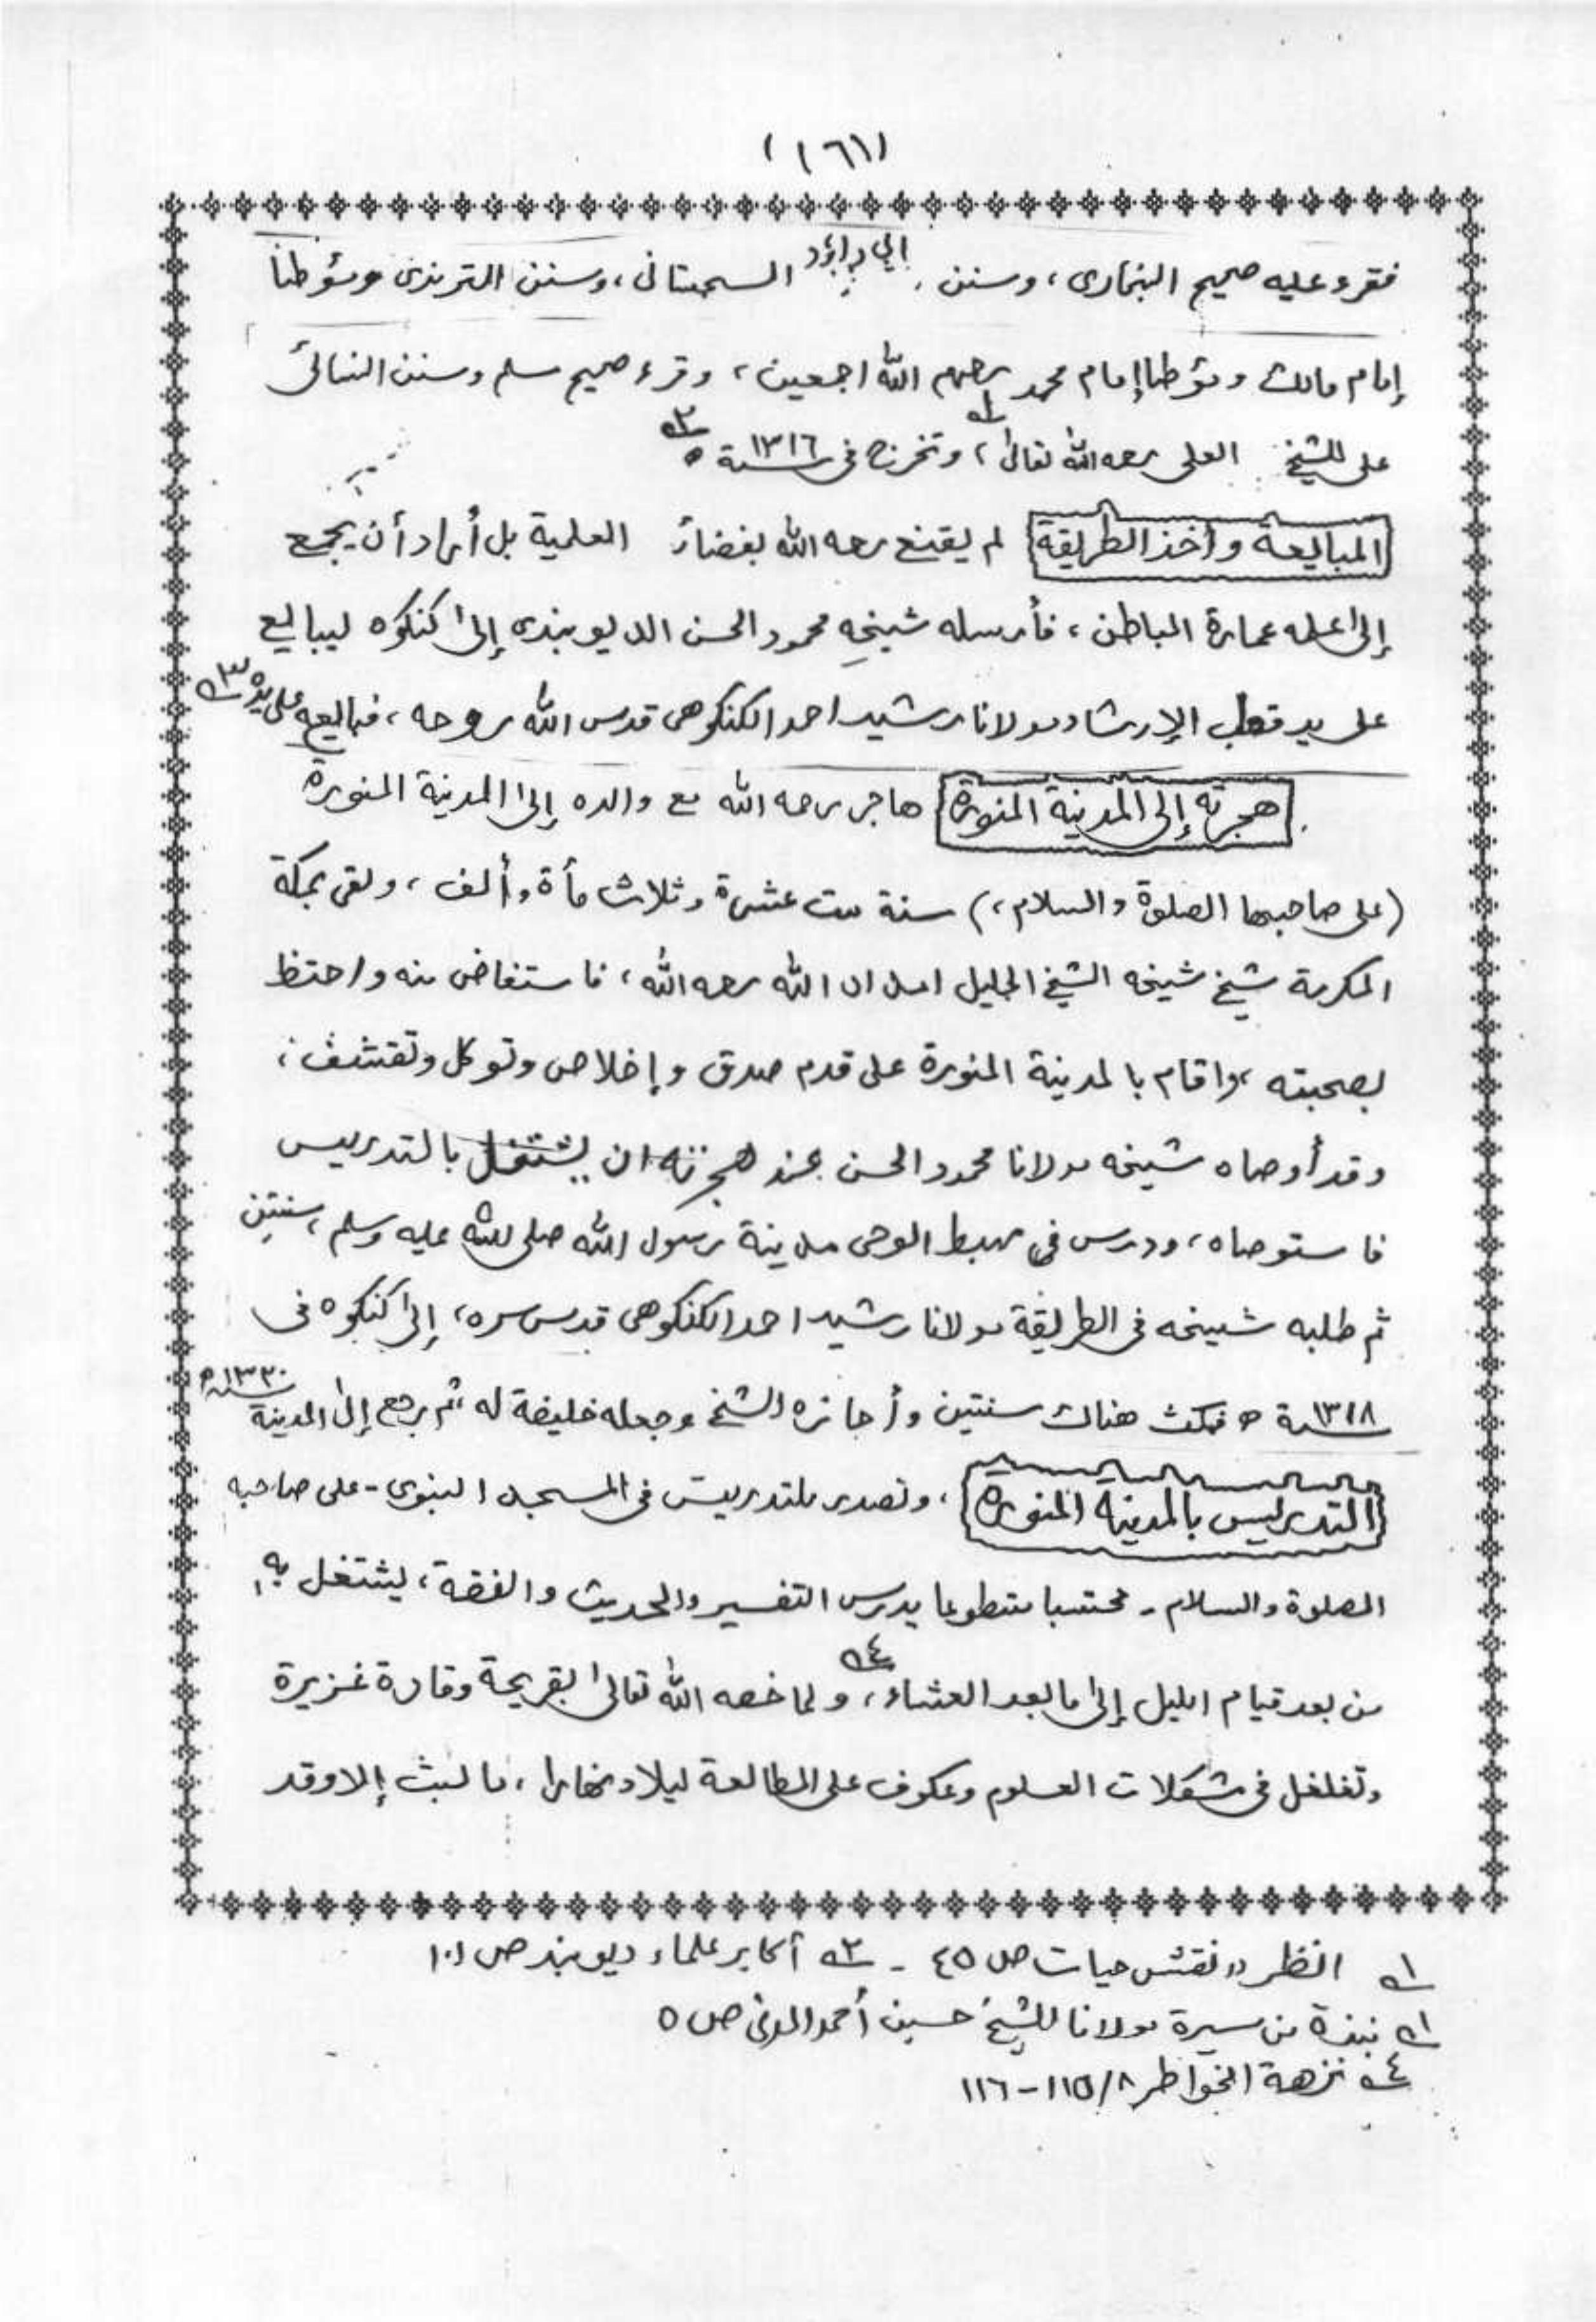 (١٦١)
فقرء عليه صحيح البخارى، وسنن ابي داؤد السجستانى، وسنن الترمذى ومؤطا
إمام مالك ومؤطا إمام محمد رحمهم الله اجمعين، وقرء صحيح مسلم وسنن النسائى
على الشيخ العلى رحمه الله تعالى ١ه، وتخرج فى سنة ١٣١٦ ه ٢ه
المبايعة وأخذ الطريقة لم يقنع رحمه الله بفضائر العلمية بل أراد أن يجمع
إلى علمه عمارة الباطن، فأرسله شيخه محمود الحسن الديوبندى إلى كنكوه ليبايع
على يد قطب الإرشاد مولانا رشيد احمد الكنكوهى قدس الله روحه، فبايعه على يده ٣ه
هجرته إلى المدينة المنورة هاجر رحمه الله مع والده إلى المدينة المنورة
(على صاحبها الصلوة والسلام،) سنة ست عشرة وثلاث مأة وأ لف، ولقى بمكة
المكرمة شيخ شيخه الشيخ الجليل امداد الله رحمه الله، فاستفاض منه واحتظ
بصحبته، واقام بالمدينة المنورة على قدم صدق وإخلاص وتوكل وتقشف،
وقد أوصاه شيخه مولانا محمود الحسن عند هجرته ان يشتغل بالتدريس
فاستوصاه، ودرس فى مهبط الوحى مدينة رسول الله صلى الله عليه وسلم، سنتين
ثم طلبه شيخه فى الطريقة مولانا رشيد احمد الكنكوهى قدس سره، إلى كنكوه فى
سنة ١٣١٨ ه فمكث هناك سنتين وأجازه الشيخ وجعله خليفة له، ثم رجع إلى المدينة سنة ١٣٢٠ه
التدريس بالمدينة المنورة، وتصدر للتدريس فى المسجد النبوى - على صاحبه
الصلوة والسلام - محتسبا متطوعا يدرس التفسير والحديث والفقه، يشتغل به
من بعد قيام الليل إلى ما بعد العشاء ٤ه، ولما خصه الله تعالى بقريحة وقادة غزيرة
وتغلغل فى مشكلات العلوم وعكوف على المطالعة ليلا ونهارا، ما لبث إلا وقد
١ه انظر "نقش حيات ص ٤٥ - ٢ه أكابر علماء ديوبند ص ١٠١
١ه نبذة من سيرة مولانا الشيخ حسين أحمد المدنى ص ٥
٤ه نزهة الخواطر ٨/ ١١٥-١١٦